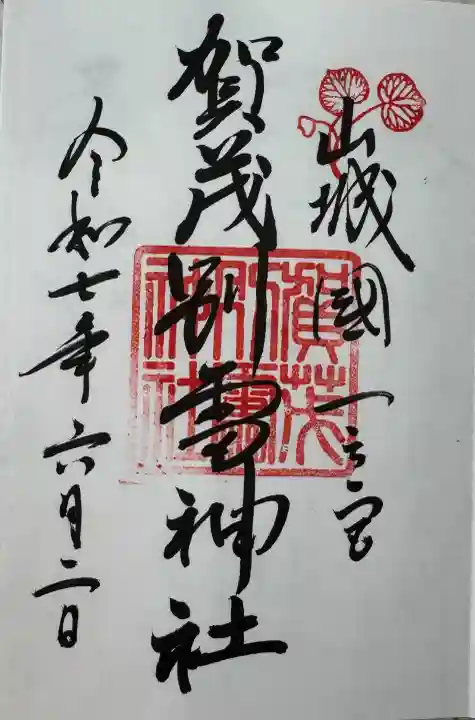 山城國一之宮
賀茂別雷神社
令和七年六月二日
賀茂別雷神社